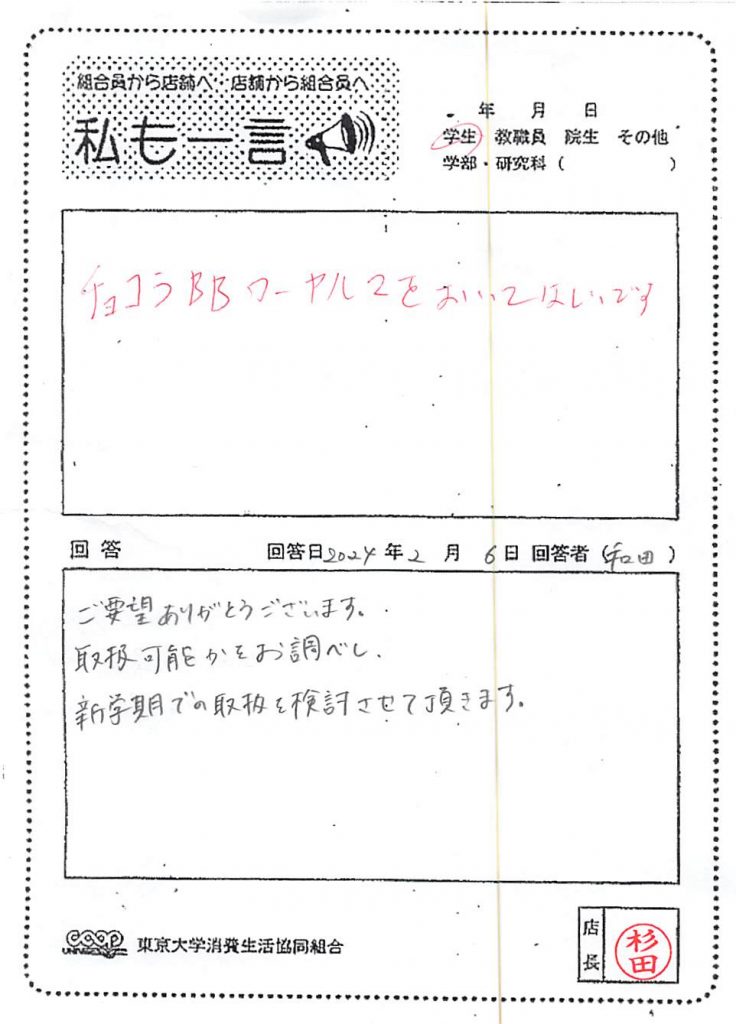 組合員から店舗へ 店舗から組合員へ
私も一言
年 月 日
学生 教職員 院生 その他
学部・研究科 ( )
チョコラBBローヤル2をおいてほしいです
回答 回答日2024年2月6日 回答者 (和田)
ご要望ありがとうございます。
取扱可能かをお調べし、
新学期での取扱を検討させて頂きます。
coop 東京大学消費生活協同組合
店長
杉田